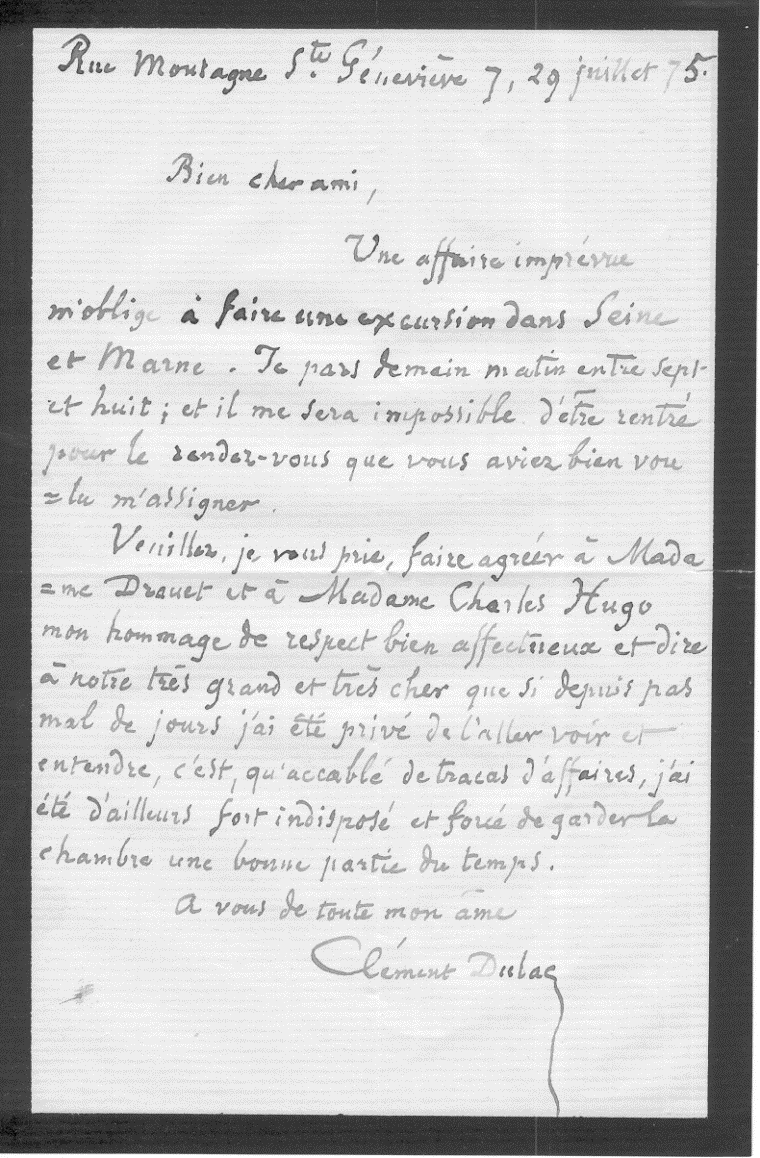 Rue Montagne Ste Géneviève 7, 29 juillet 75.
Bien cher ami,
Une affaire imprévue
m'oblige à faire une excursion dans Seine
et Marne. Je pars demain matin entre sept
et huit ; et il me sera impossible d'être rentré
pour le rendez-vous que vous aviez bien vou
=lu m'assigner.
Veuillez, je vous prie, faire agréer à Mada
=me Drouet et à Madame Charles Hugo
mon hommage de respect bien affectueux et dire
à notre très grand et très cher que si depuis pas
mal de jours j'ai été privé de l'aller voir et
entendre, c'est, qu'accablé de tracas d'affaires, j'ai
été d'ailleurs fort indisposé et forcé de garder la
chambre une bonne partie du temps.
A vous de toute mon âme
Clément Dulac